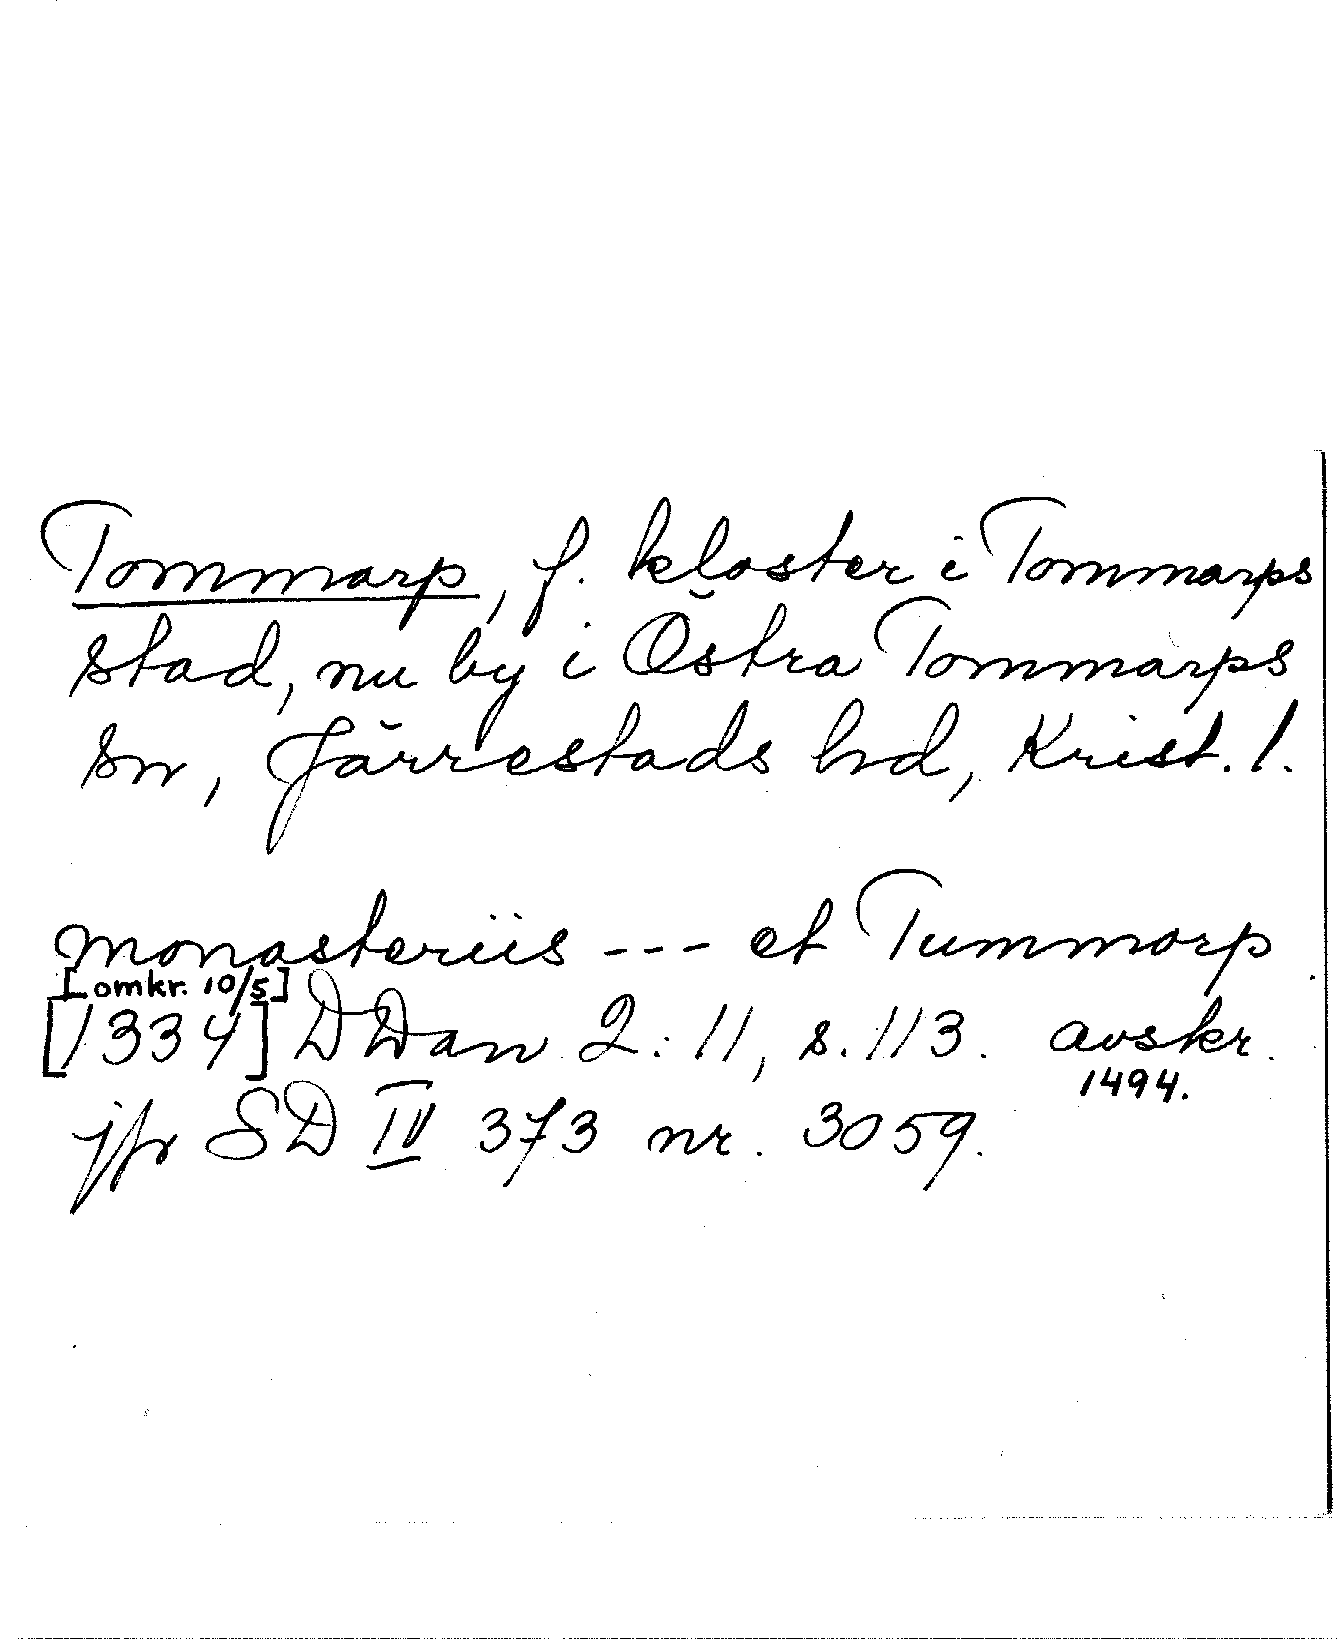 Tommarp, f. kloster i Tommarps
stad, nu by i Östra Tommarps
sn, Järrestads hd, Krist. l.
monasteriis --- et Tummorp
[omkr. 10/5]
[1334] DDan 2:11, s. 113. avskr.
1494.
jfr SD IV 373 nr. 3059.